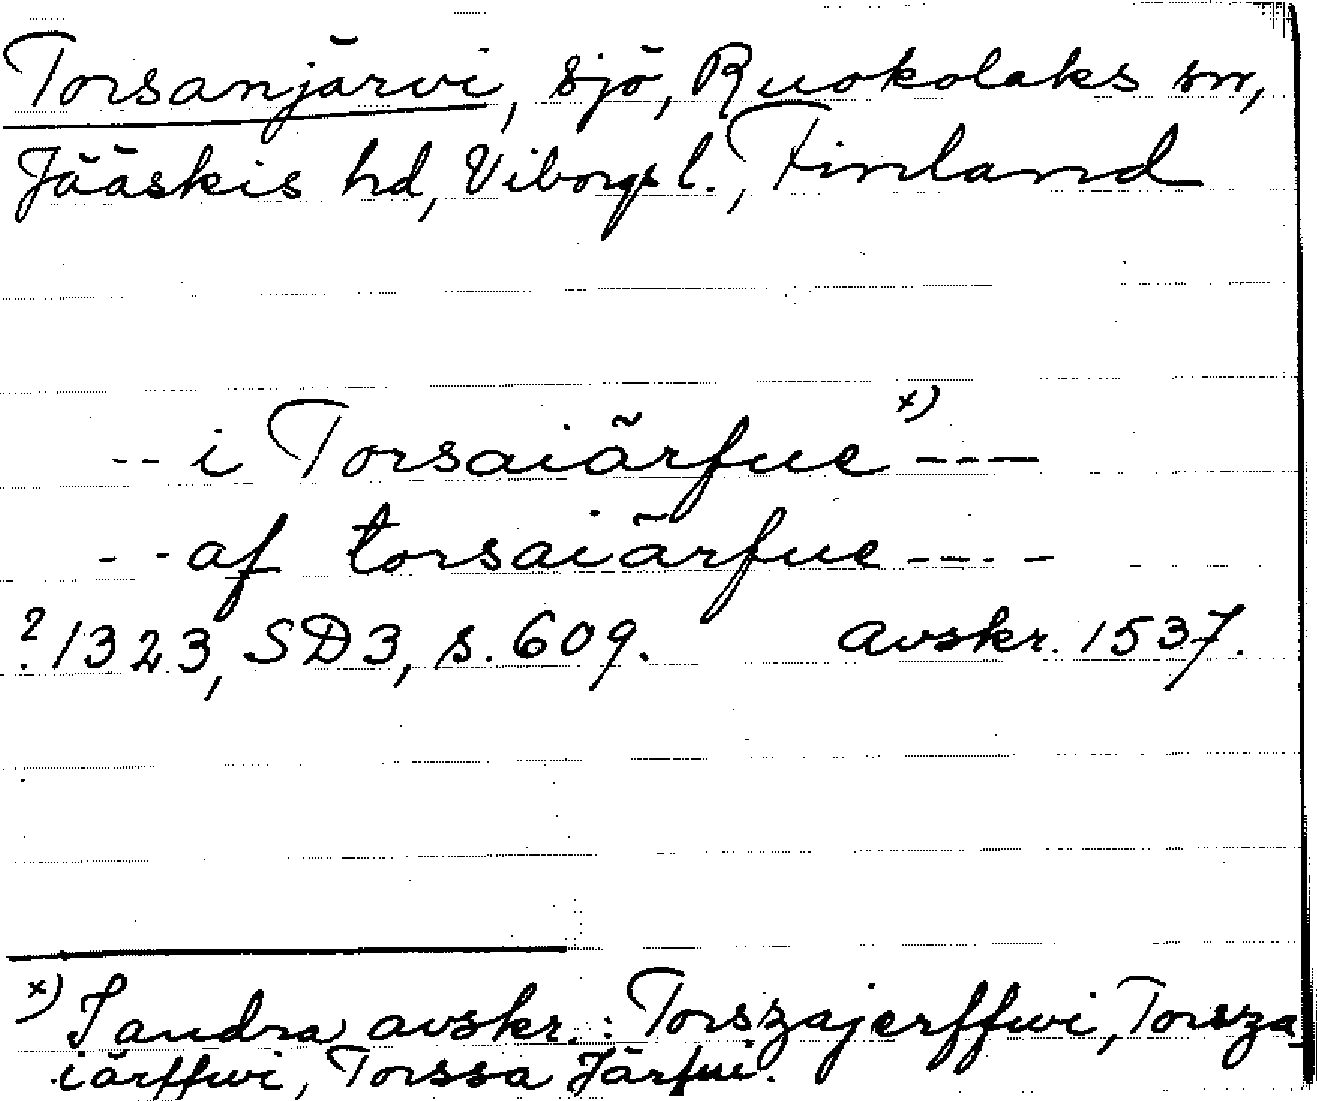 Torsanjärvi, sjö, Ruokolaks sn,
Jääskis hd, Viborgs l., Finland
-- i Torsaiärfue x) ---
-- af torsaiärfue ----
? 1323, SD3, s. 609. avskr. 1537.
x) I andra avskr.: Torszajerffwi, Torsza-
iärffwi, Torssa Järfwi.